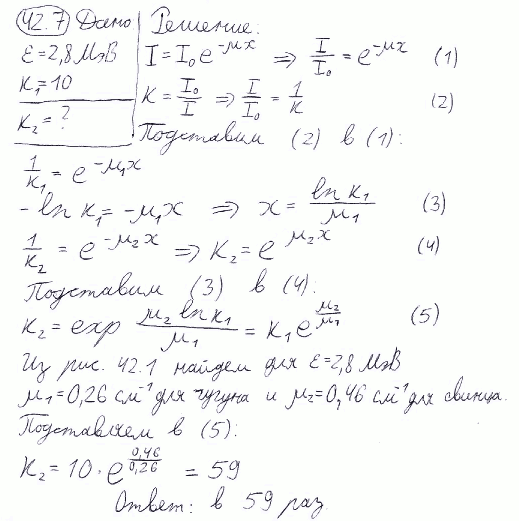 42.7 Дано
ε=2,8 МэВ
K₁=10
K₂=?
Решение:
I=I₀e^(-μx) ⇒ I/I₀=e^(-μx) (1)
K=I₀/I ⇒ I/I₀=1/K (2)
Подставим (2) в (1):
1/K₁=e^(-μ₁x)
-ln K₁=-μ₁x ⇒ x=ln K₁/μ₁ (3)
1/K₂=e^(-μ₂x) ⇒ K₂=e^(μ₂x) (4)
Подставим (3) в (4):
K₂=exp μ₂ ln K₁/μ₁=K₁e^(μ₂/μ₁) (5)
Из рис. 42.1 найдем для ε=2,8 МэВ
μ₁=0,26 см⁻¹ для чугуна и μ₂=0,46 см⁻¹ для свинца.
Подставляем в (5):
K₂=10·e^(0,46/0,26)=59
Ответ: в 59 раз